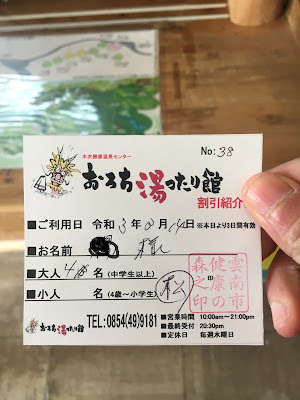 木次健康温泉センター
No: 38
おろち湯ったり館
割引紹介
■ご利用日 令和 3年 月14日 ※本日より3日間有効
■お名前 様
■大人 名(中学生以上)
■小人 名(4歳～小学生) 松
雲南市
健康の
森之印
おろち湯ったり館
TEL:0854(49)9181
■営業時間 10:00am～21:00pm
■最終受付 20:30pm
■定休日 毎週水曜日